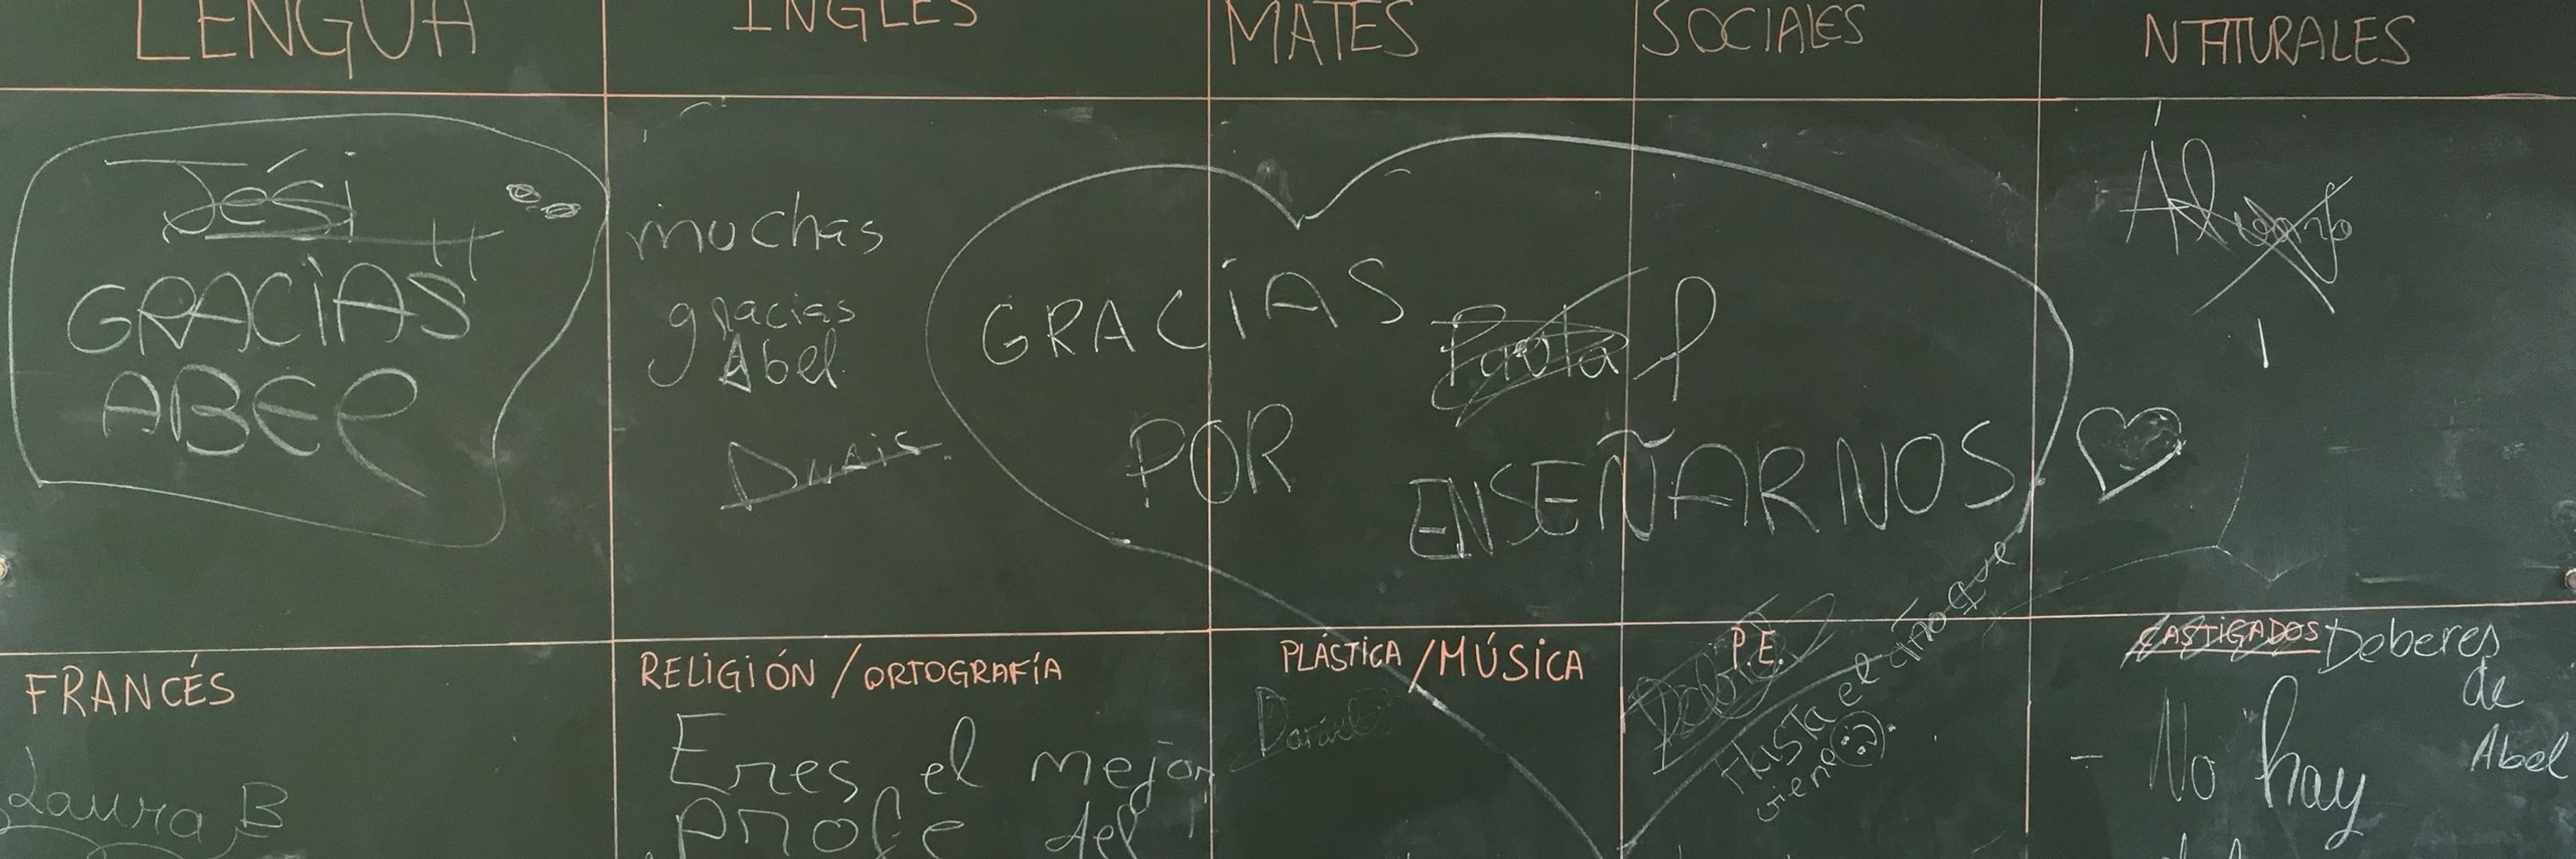 LENGUA
INGLES
MATES
SOCIALES
NATURALES
Jési
GRACIAS
ABEL
muchas
gracias
Abel
GRACIAS
Paola
POR
ENSEÑARNOS
FRANCÉS
Laura B
RELIGIÓN / ORTOGRAFÍA
Eres el mejor
profe del
PLÁSTICA / MÚSICA
P.E.
Hasta el año que
viene
CASTIGADOS Deberes
de
Abel
- No hay